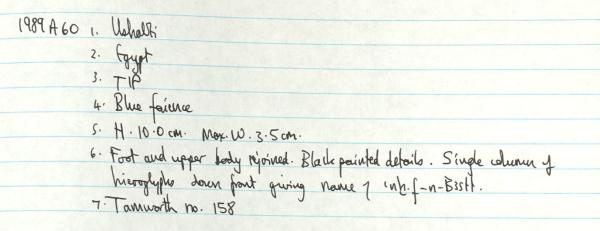 1989 A 60 1. Ushabti
2. Egypt
3. TIP
4. Blue faience
5. H. 10.0cm. Max. W. 3.5cm.
6. Foot and upper body rejoined. Black painted details. Single column of
hieroglyphs down front giving name of ꜥnḫ.f-n-B3stt.
7. Tamworth no. 158